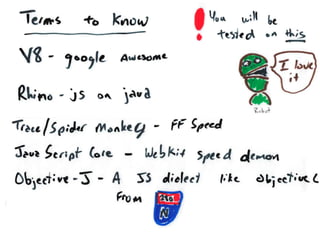 Terms to Know
! You will be
tested on this
V8 - google Awesome
I love
it
Rhino - js on java
Trace/Spider Monkey - FF Speed
JavaScript Core - WebKit speed demon
Objective-J - A JS dialect like Objective C
From 280
N